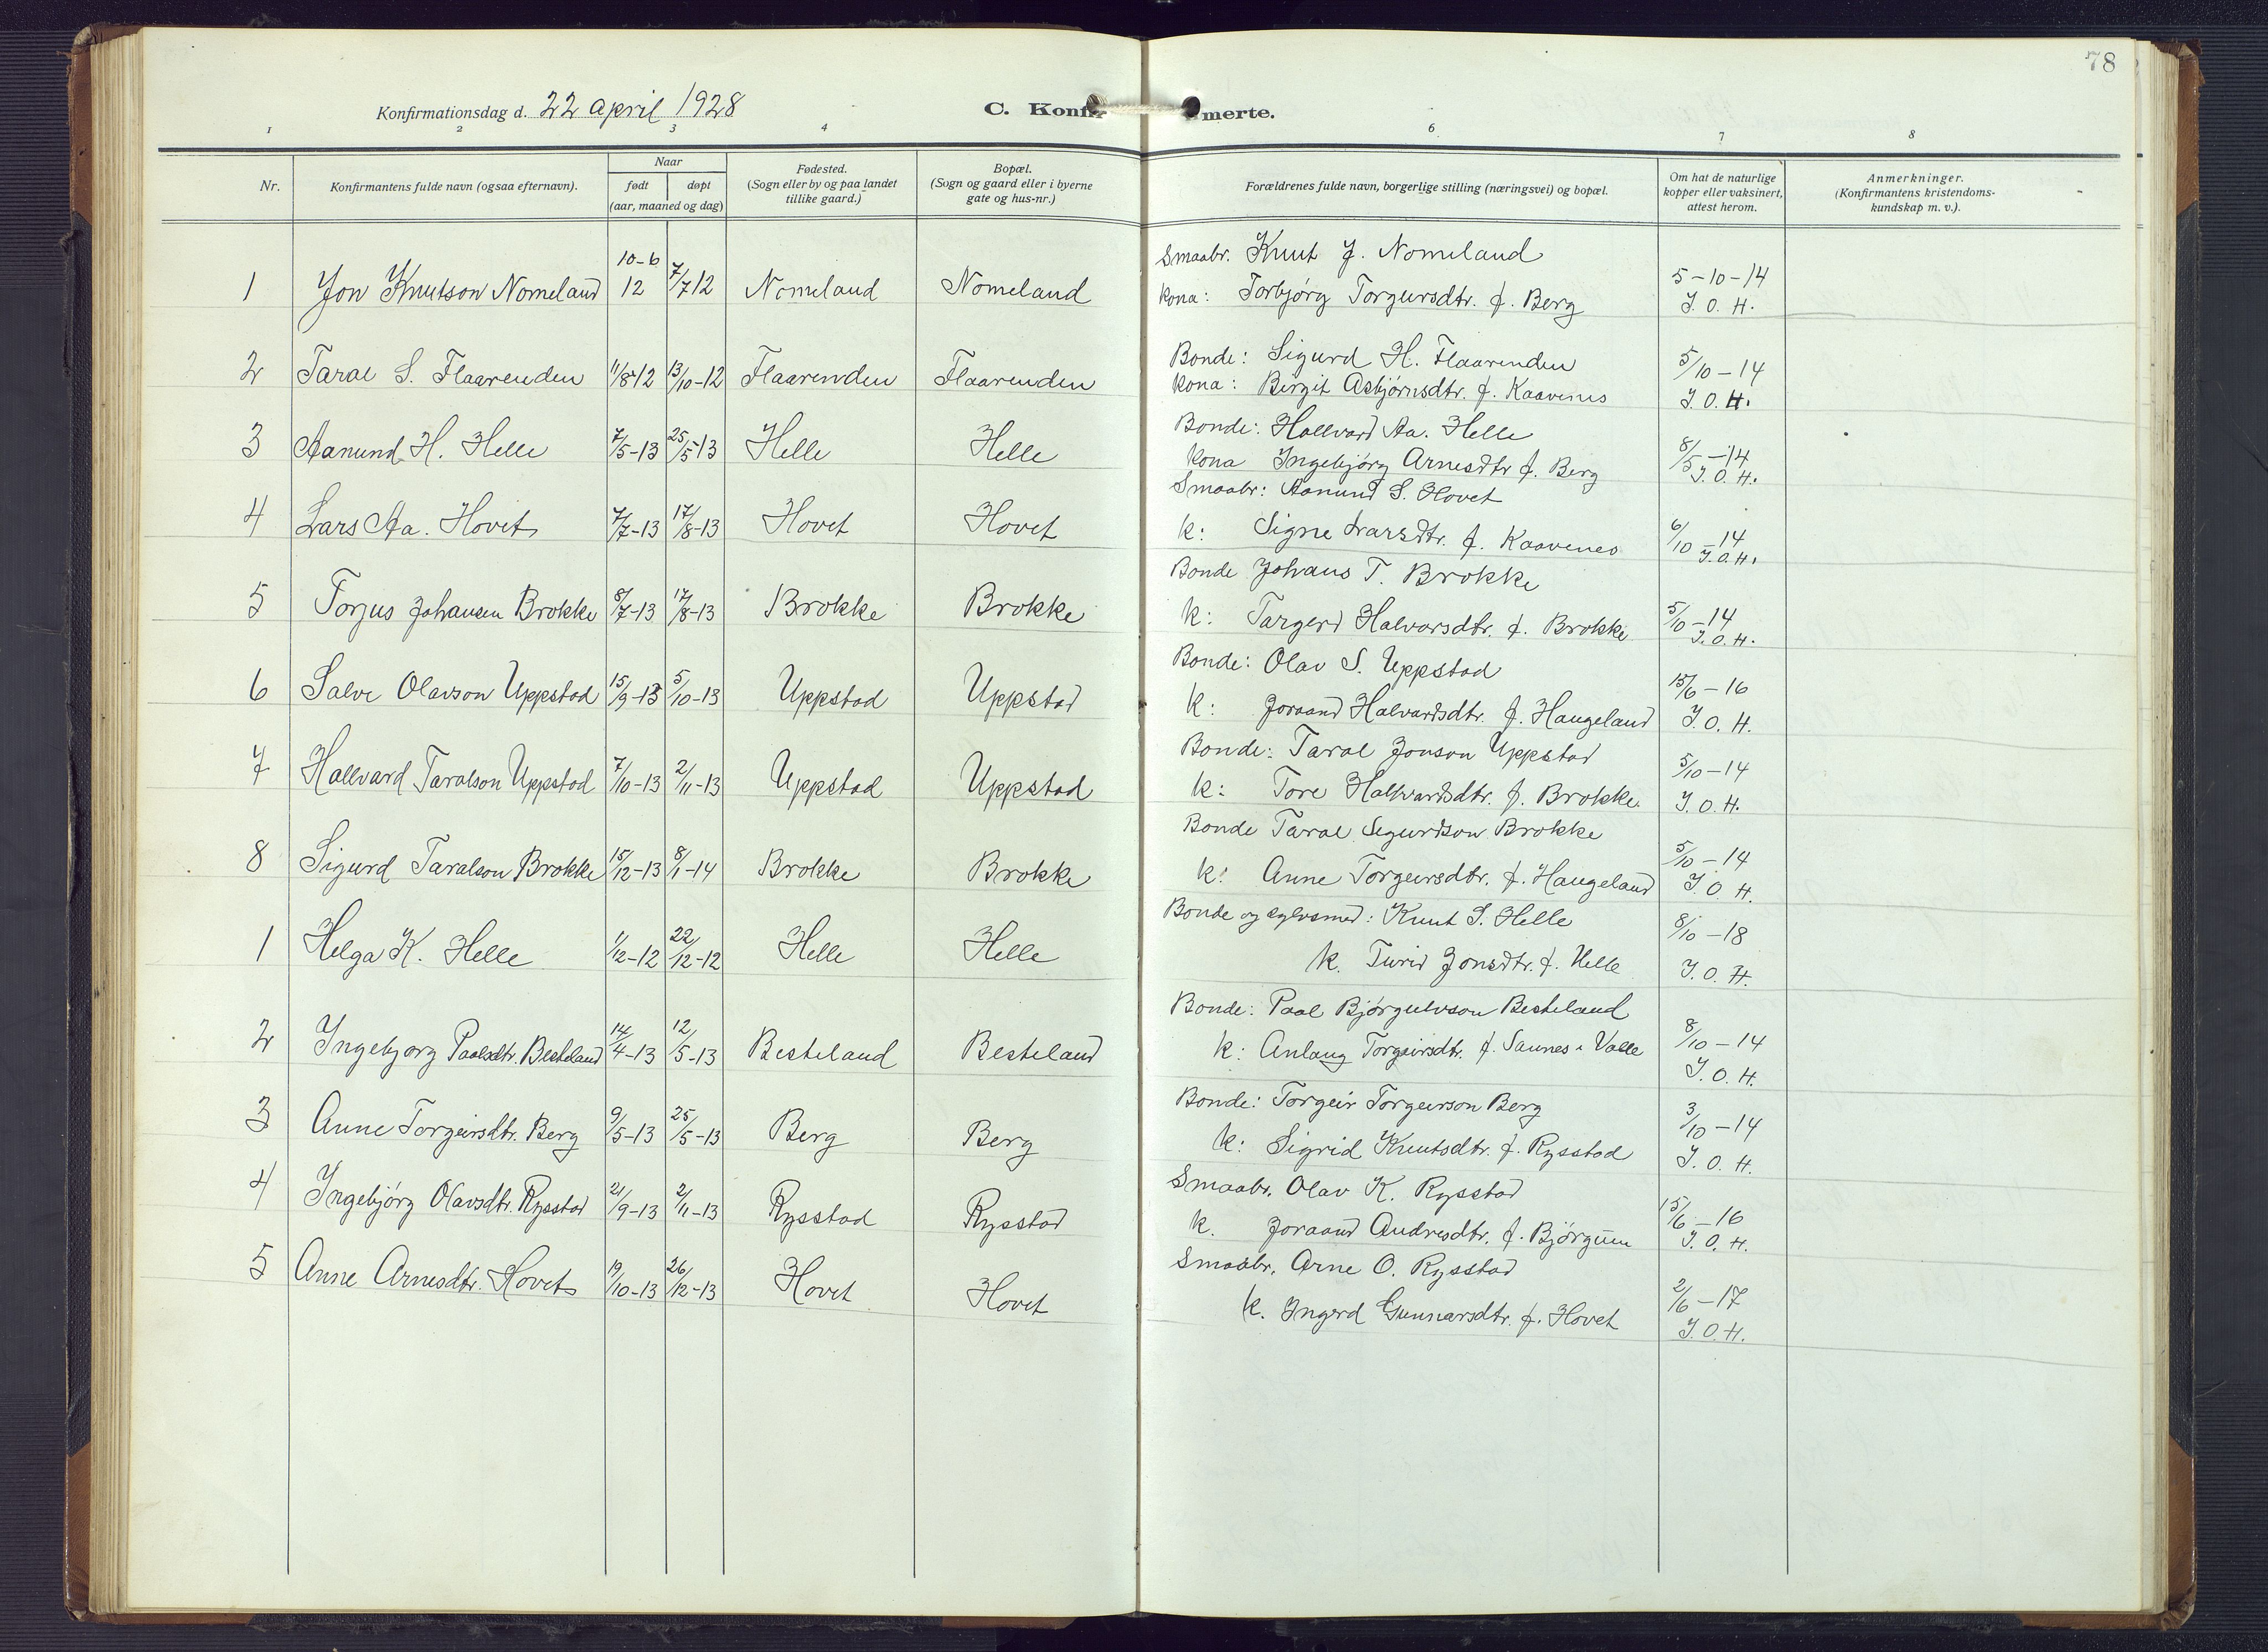 78
Konfirmationsdag d. 22 april 1928
C. Konfirmerte.
1 2 3 4 6 7 8
Nr.
Konfirmantens fulde navn (ogsaa efternavn).
Naar
født døpt
(aar, maaned og dag)
Fødested.
(Sogn eller by og paa landet
tillike gaard.)
Bopæl.
(Sogn og gaard eller i byerne
gate og hus-nr.)
Forældrenes fulde navn, borgerlige stilling (næringsvei) og bopæl.
Om hat de naturlige
kopper eller vaksinert,
attest herom.
Anmerkninger.
(Konfirmantens kristendoms-
kundskap m. v.).
1 Jon Knutson Nomeland 10-6 12 7/7 12 Nomeland Nomeland
Smaabr. Knut J. Nomeland
kona: Torbjørg Torgeirsdtr. f. Berg
5-10-14
J. O. H.
2 Taral S. Flaarenden 11/8-12 13/10-12 Flaarenden Flaarenden
Bonde: Sigurd H. Flaarenden
kona: Birgit Asbjørnsdtr. f. Kaavenes
5/10-14
J. O. H.
3 Aanund H. Helle 7/5-13 25/5-13 Helle Helle
Bonde: Hallvard Aa. Helle
kona Ingebjørg Arnesdtr f. Berg
8/5-14
J. O. H.
4 Lars Aa. Hovet 7/7-13 17/8-13 Hovet Hovet
Smaabr: Aanund S. Hovet
k: Signe Larsdtr. f. Kaavenes
6/10-14
J. O. H.
5 Torjus Johansen Brokke 8/7-13 17/8-13 Brokke Brokke
Bonde Johans T. Brokke
k: Targerd Halvorsdtr. f. Brokke
5/10-14
J. O. H.
6 Salve Olavson Uppstad 15/9-13 5/10-13 Uppstad Uppstad
Bonde: Olav S. Uppstad
k: Joraand Halvardsdtr. f. Haugeland
15/6-16
J. O. H.
7 Hallvard Taralson Uppstad 7/10-13 2/11-13 Uppstad Uppstad
Bonde: Taral Jonson Uppstad
k: Tore Hallvardsdtr. f. Brokke.
5/10-14
J. O. H.
8 Sigurd Taralson Brokke 15/12-13 8/1-14 Brokke Brokke
Bonde Taral Sigurdson Brokke
k: Anne Torgeirsdtr. f. Haugeland
5/10-14
J. O. H.
1 Helga K. Helle 1/12-12 22/12-12 Helle Helle
Bonde og sylvsmed: Knut S. Helle
k. Turid Jonsdtr. f. Helle
8/10-18
J. O. H.
2 Ingebjørg Paalsdtr. Besteland 14/4-13 12/5-13 Besteland Besteland
Bonde: Paal Bjørgulvson Besteland
k: Anlaug Torgeirsdtr. f. Saunes i Valle
8/10-14
J. O. H.
3 Anne Torgeirsdtr. Berg 9/5-13 25/5-13 Berg Berg
Bonde: Torgeir Torgeirson Berg
k: Sigrid Knutsdtr. f. Rysstad
3/10-14
J. O. H.
4 Ingebjørg Olavsdtr. Rysstad 21/9-13 2/11-13 Rysstad Rysstad
Smaabr. Olav K. Rysstad
k. Joraand Andresdtr. f. Bjørgum
15/6-16
J. O. H.
5 Anne Arnesdtr. Hovet 19/10-13 26/12-13 Hovet Hovet
Smaabr. Arne O. Rysstad
k. Ingerd Gunnarsdtr. f. Hovet
2/6-17
J. O. H.